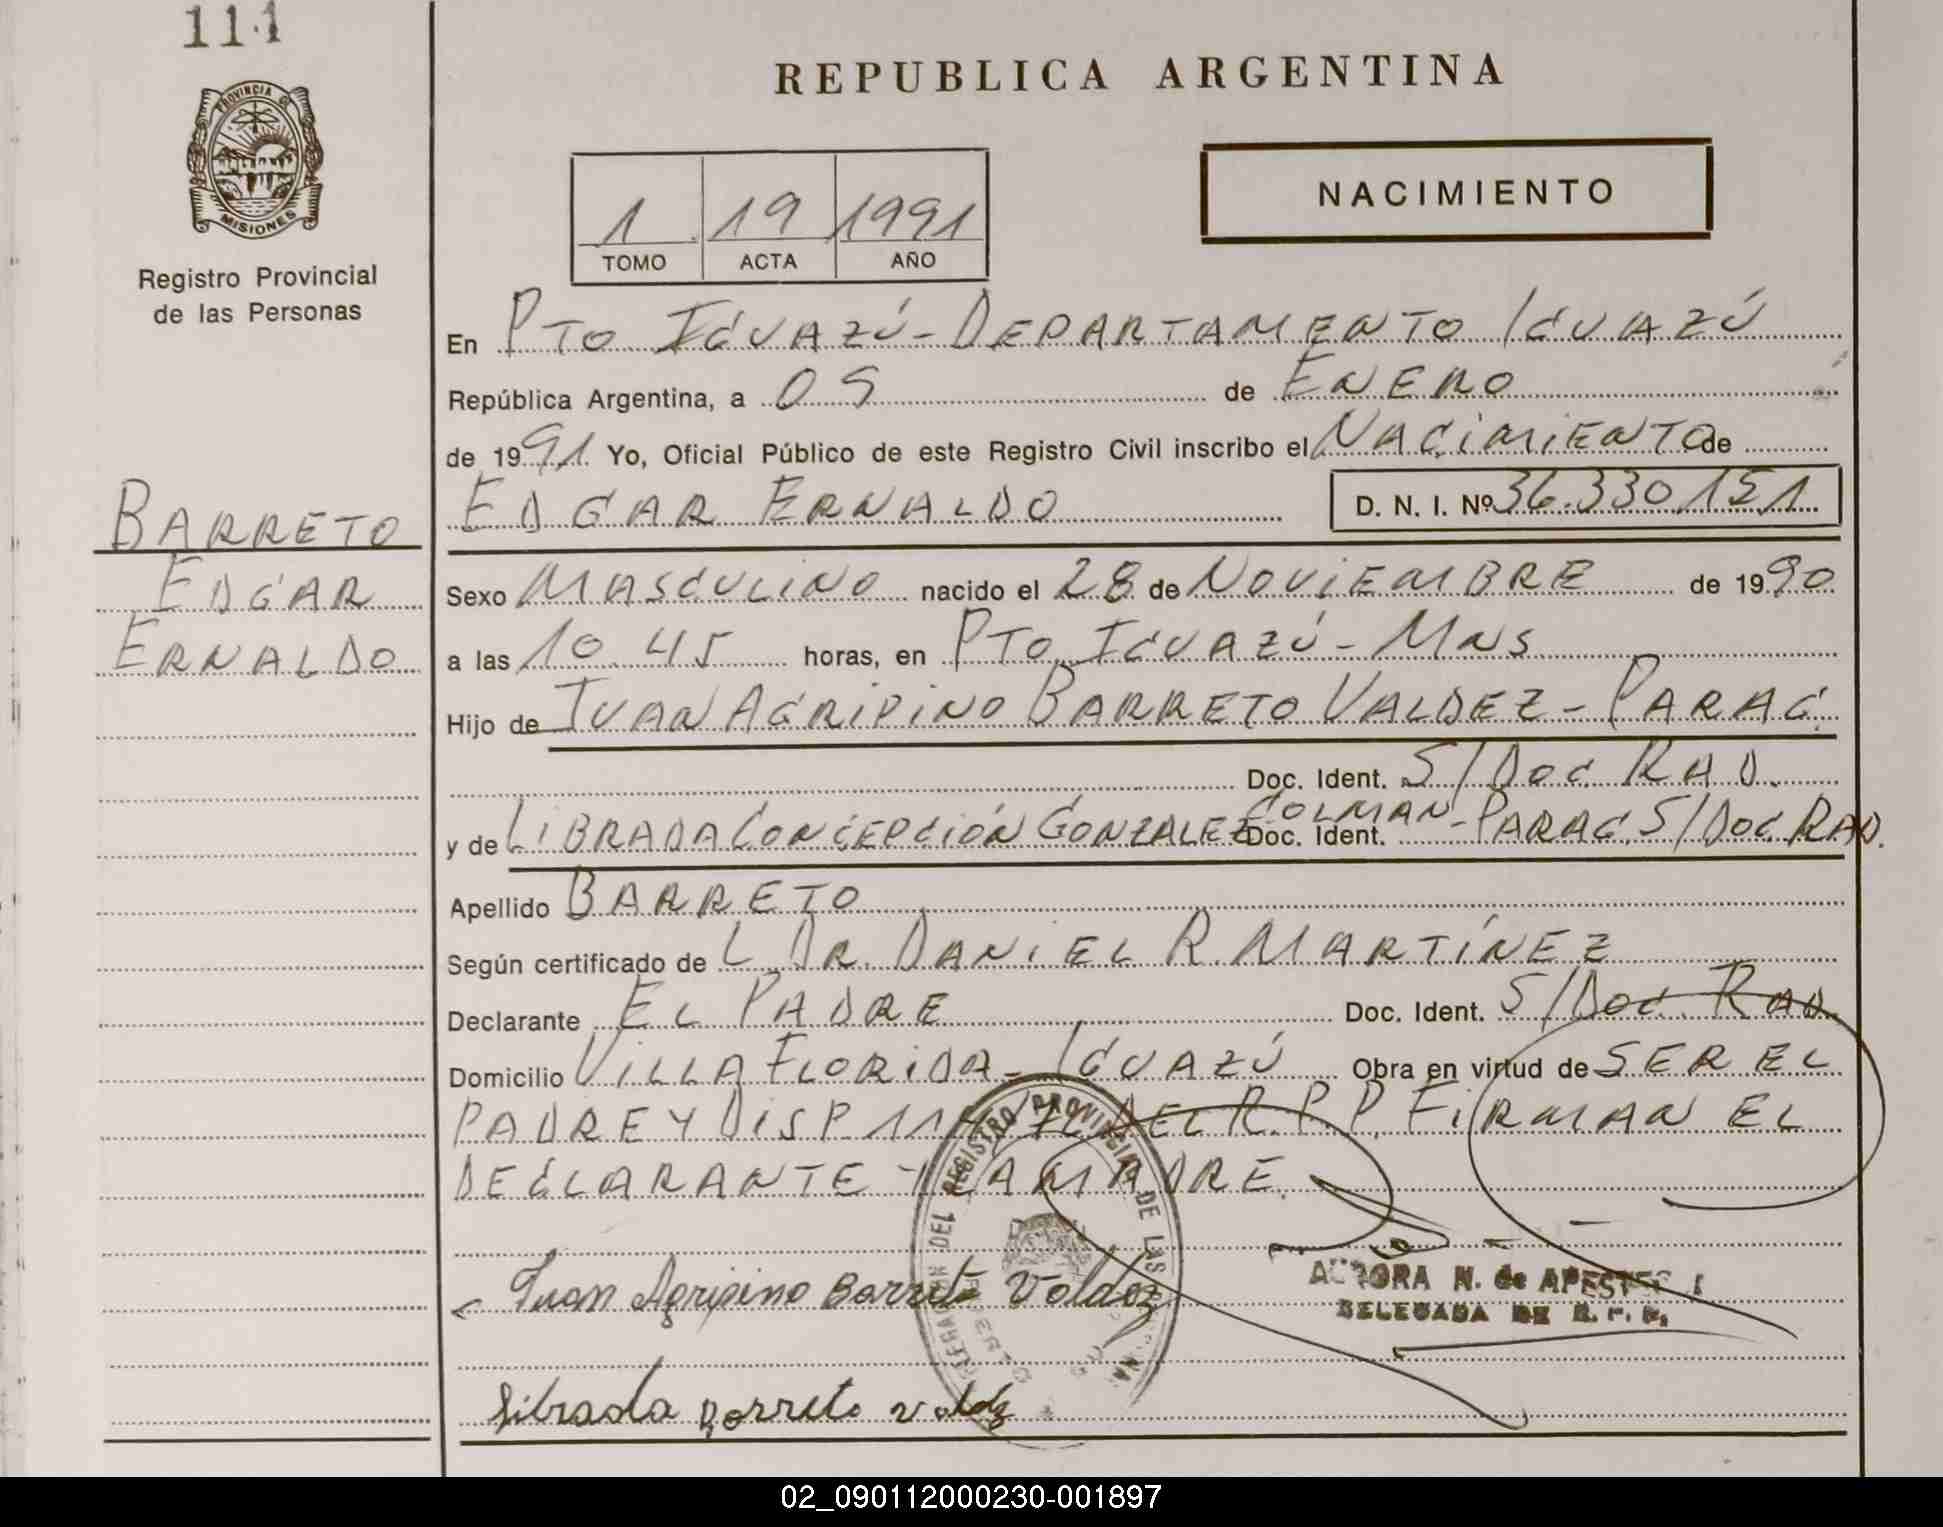 111
PROVINCIA DE
MISIONES
Registro Provincial
de las Personas
BARRETO
EDGAR
ERNALDO
REPUBLICA ARGENTINA
1 19 1991
TOMO ACTA AÑO
NACIMIENTO
En PTO IGUAZÚ - DEPARTAMENTO IGUAZÚ
República Argentina, a 09 de ENERO
de 1991 Yo, Oficial Público de este Registro Civil inscribo el NACIMIENTO de
EDGAR ERNALDO D. N. I. Nº 36.330151
Sexo MASCULINO nacido el 28 de NOVIEMBRE de 1990
a las 10.45 horas, en PTO IGUAZÚ - MNS
Hijo de JUAN AGRIPINO BARRETO VALDEZ - PARAG.
Doc. Ident. S/DOC RAD.
y de LIBRADA CONCEPCIÓN GONZALEZ COLMAN - Doc. Ident. PARAG S/DOC RAD.
Apellido BARRETO
Según certificado de L DR. DANIEL R. MARTÍNEZ
Declarante EL PADRE Doc. Ident. S/DOC RAD.
Domicilio VILLA FLORIDA - IGUAZÚ Obra en virtud de SER EL
PADRE Y DISP. DEL R.P.P. FIRMAN EL
DECLARANTE Y LA MADRE.
DEL REGISTRO PROVINCIAL DE LAS
Juan Agripino Barreto Valdez
AURORA N. de
DELEGADA DE R. P. P.
Librada Barreto Valdz
02_090112000230-001897